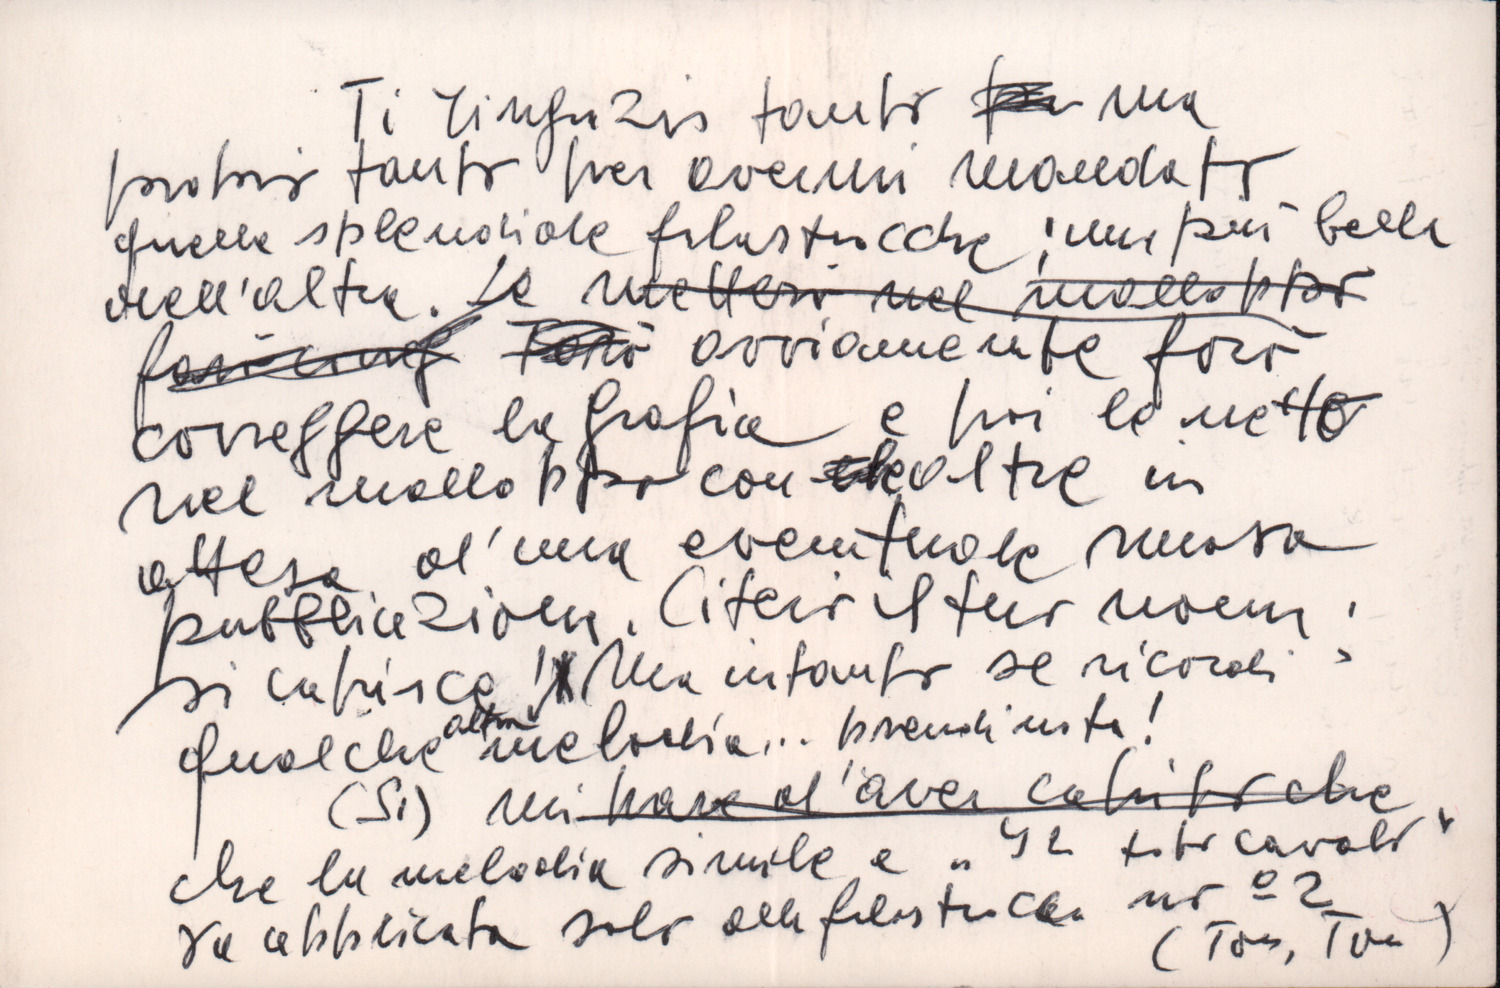 Ti ringrazio tanto ma
proprio tanto per avermi mandato
quelle splendide filastrocche, una più bella
dell'altra. Le metterò nel malloppo
ovviamente farò
correggere la grafia e poi le metto
nel malloppo con altre in
attesa d'una eventuale nuova
pubblicazione. Citerò il tuo nome,
si capisce! Ma intanto se ricordi
qualche altra melodia... prendi nota!
(Si) mi pare d'aver capito che
che la melodia simile a " cavalò"
va applicata solo alla filastrocca nrº 2
(Ton, Ton)